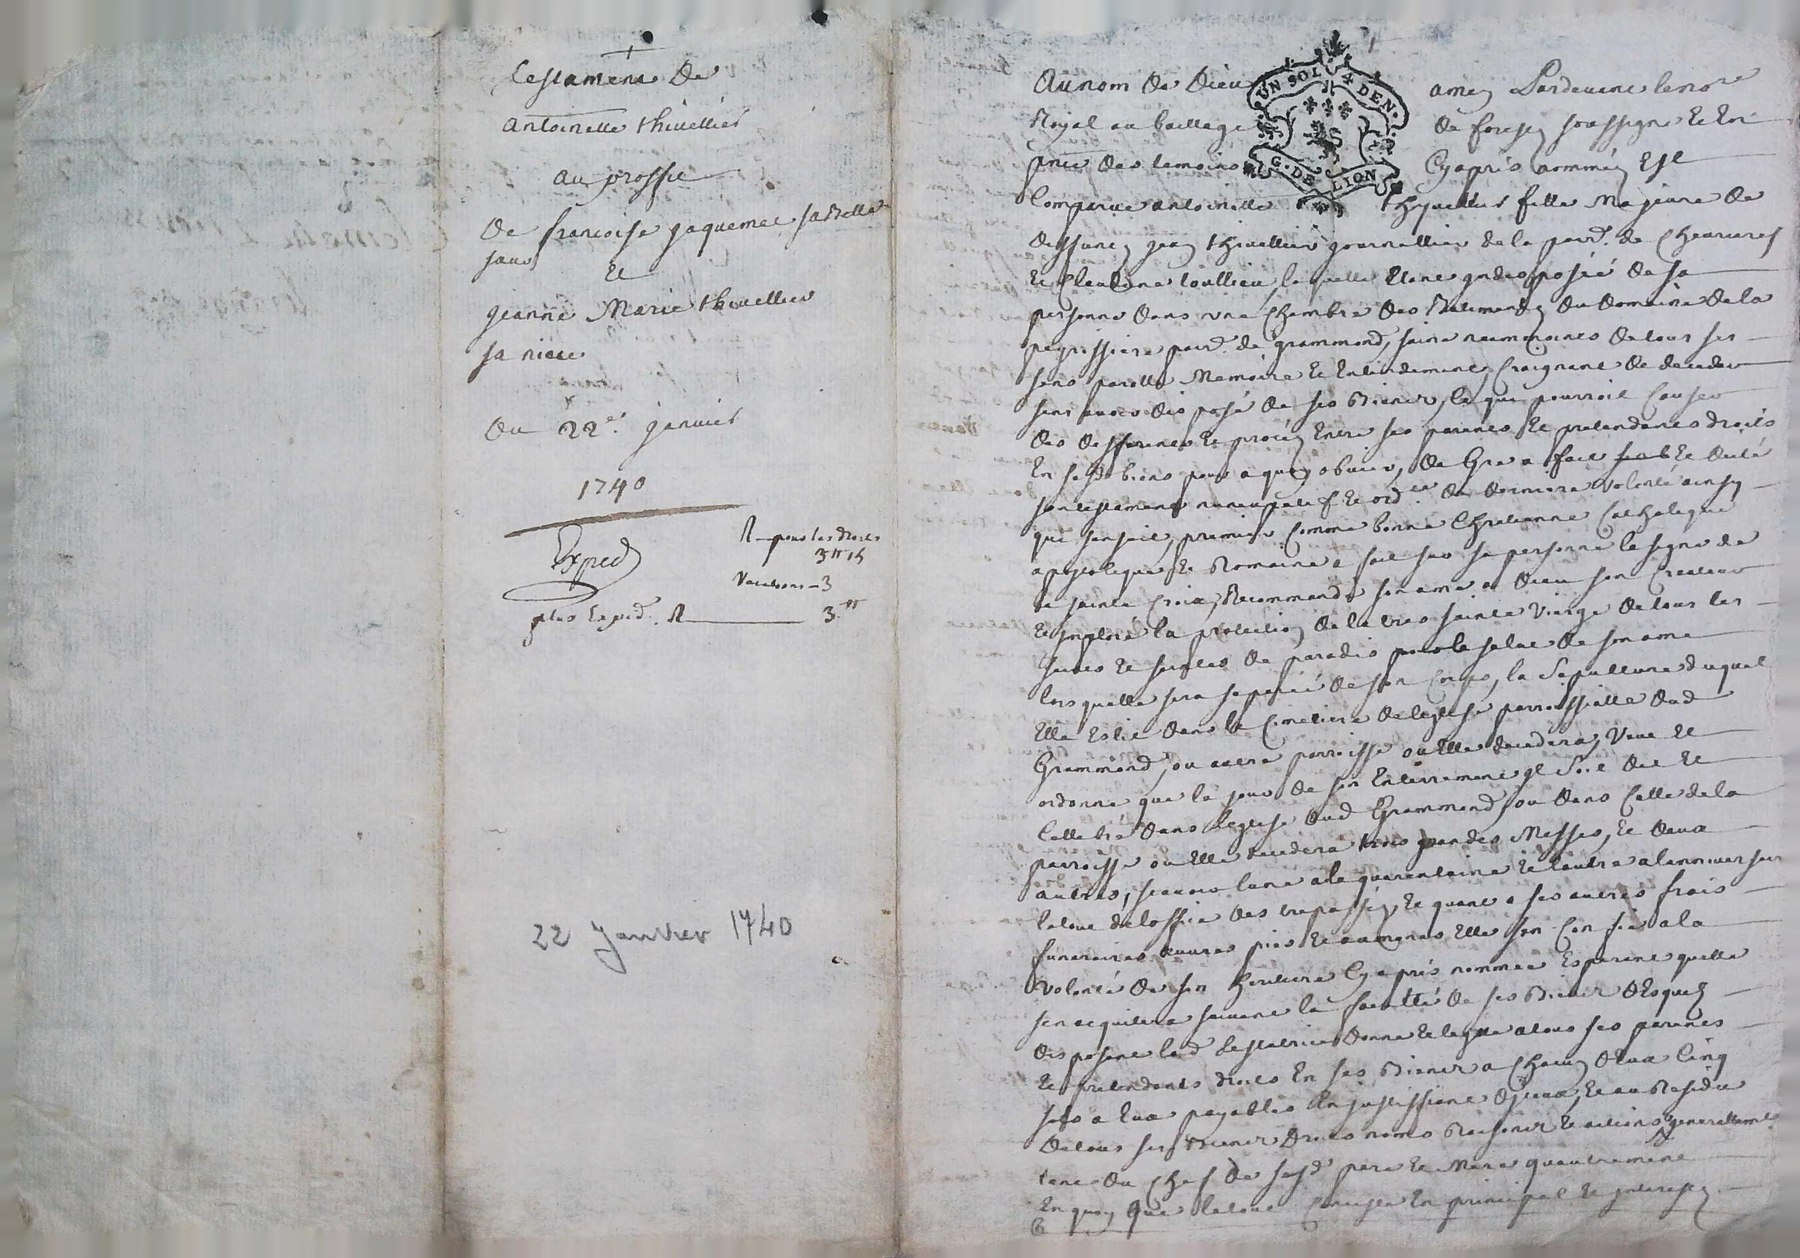 Testament De
Antoinette thivellier
au proffit
De francoise jaquemet sa Belle
soeur Et
jeanne Marie thivellier
sa niece
Du 22e. janvier
1740
Exped
R pour les droits
3tt 15
Vacations - 3
plus Exped. R 3tt
22 Janvier 1740
UN SOL 4 DEN.
G. DE LION
Au nom De Dieu amen Pardevant le no.re
Royal au bailliage De forest soussigné Et En
pnce des temoins Cyaprés nommés Est
Comparue antoinette thivellier fille Majeure De
deffunct jean thivellier journallier de la parr. de Chevrieres
Et Claudine Coullieu, laquelle Etant indisposée De sa
personne dans une Chambre des Batiments du Domaine De la
pegrissiere parr. de grammond, saine neanmoins de tous ses
sens parolle Memoire Et Entendement, Craignant De deceder
sans avoir disposé De ses Biens, Ce qui pourroit Causer
des differents Et procés Entre ses parents Et pretendants droits
En ses biens pour a quoy obvier, De Gré a fait Et dicté
son testament nuncupatif Et ord.re De derniere volonté ainsy
que s'ensuit, premier Comme bonne Chretienne Catholique
apostolique Et Romaine a fait sur sa personne le signe de
la sainte Croix, Recommandé son ame a Dieu son Createur
Et imploré la protection De la tres sainte Vierge De tous les
saints Et saintes De paradis pour le salut De son ame
lors quelle sera separée De son Corps, la Sepulture duquel
Elle Eslit dans le Cimetiere de leglise parroissialle Dud
Grammond, ou autre parroisse ou Elle decedera, Veut Et
ordonne que le jour De son Enterrement il Soit dit Et
Cellebré dans leglise dud Grammond, ou dans Celle de la
parroisse ou Elle decedera trois grandes Messes, Et deux
autres, scavoir lune a la quarantaine Et lautre a lanniversaire
le tout de loffice des trepassés, Et quant a ses autres frais
funeraires œuvres pies Et aumones Elle s'en Confie a la
volonté De son heritiere Cy aprés nommée Esperant quelle
s'en acquitera suivant la faculté de ses Biens Desquels
disposant lad testatrice donne Et legue a tous ses parents
Et pretendants droits En ses Biens a Chacun deux Cinq
sols a Eux payables En justiffiant Et au Residu
De tous ses Biens Droits noms Raisons Et actions generallement
tant du Chef De sesd pere Et Mere quautrement
En quoy que le tout Consiste En principal Et interests